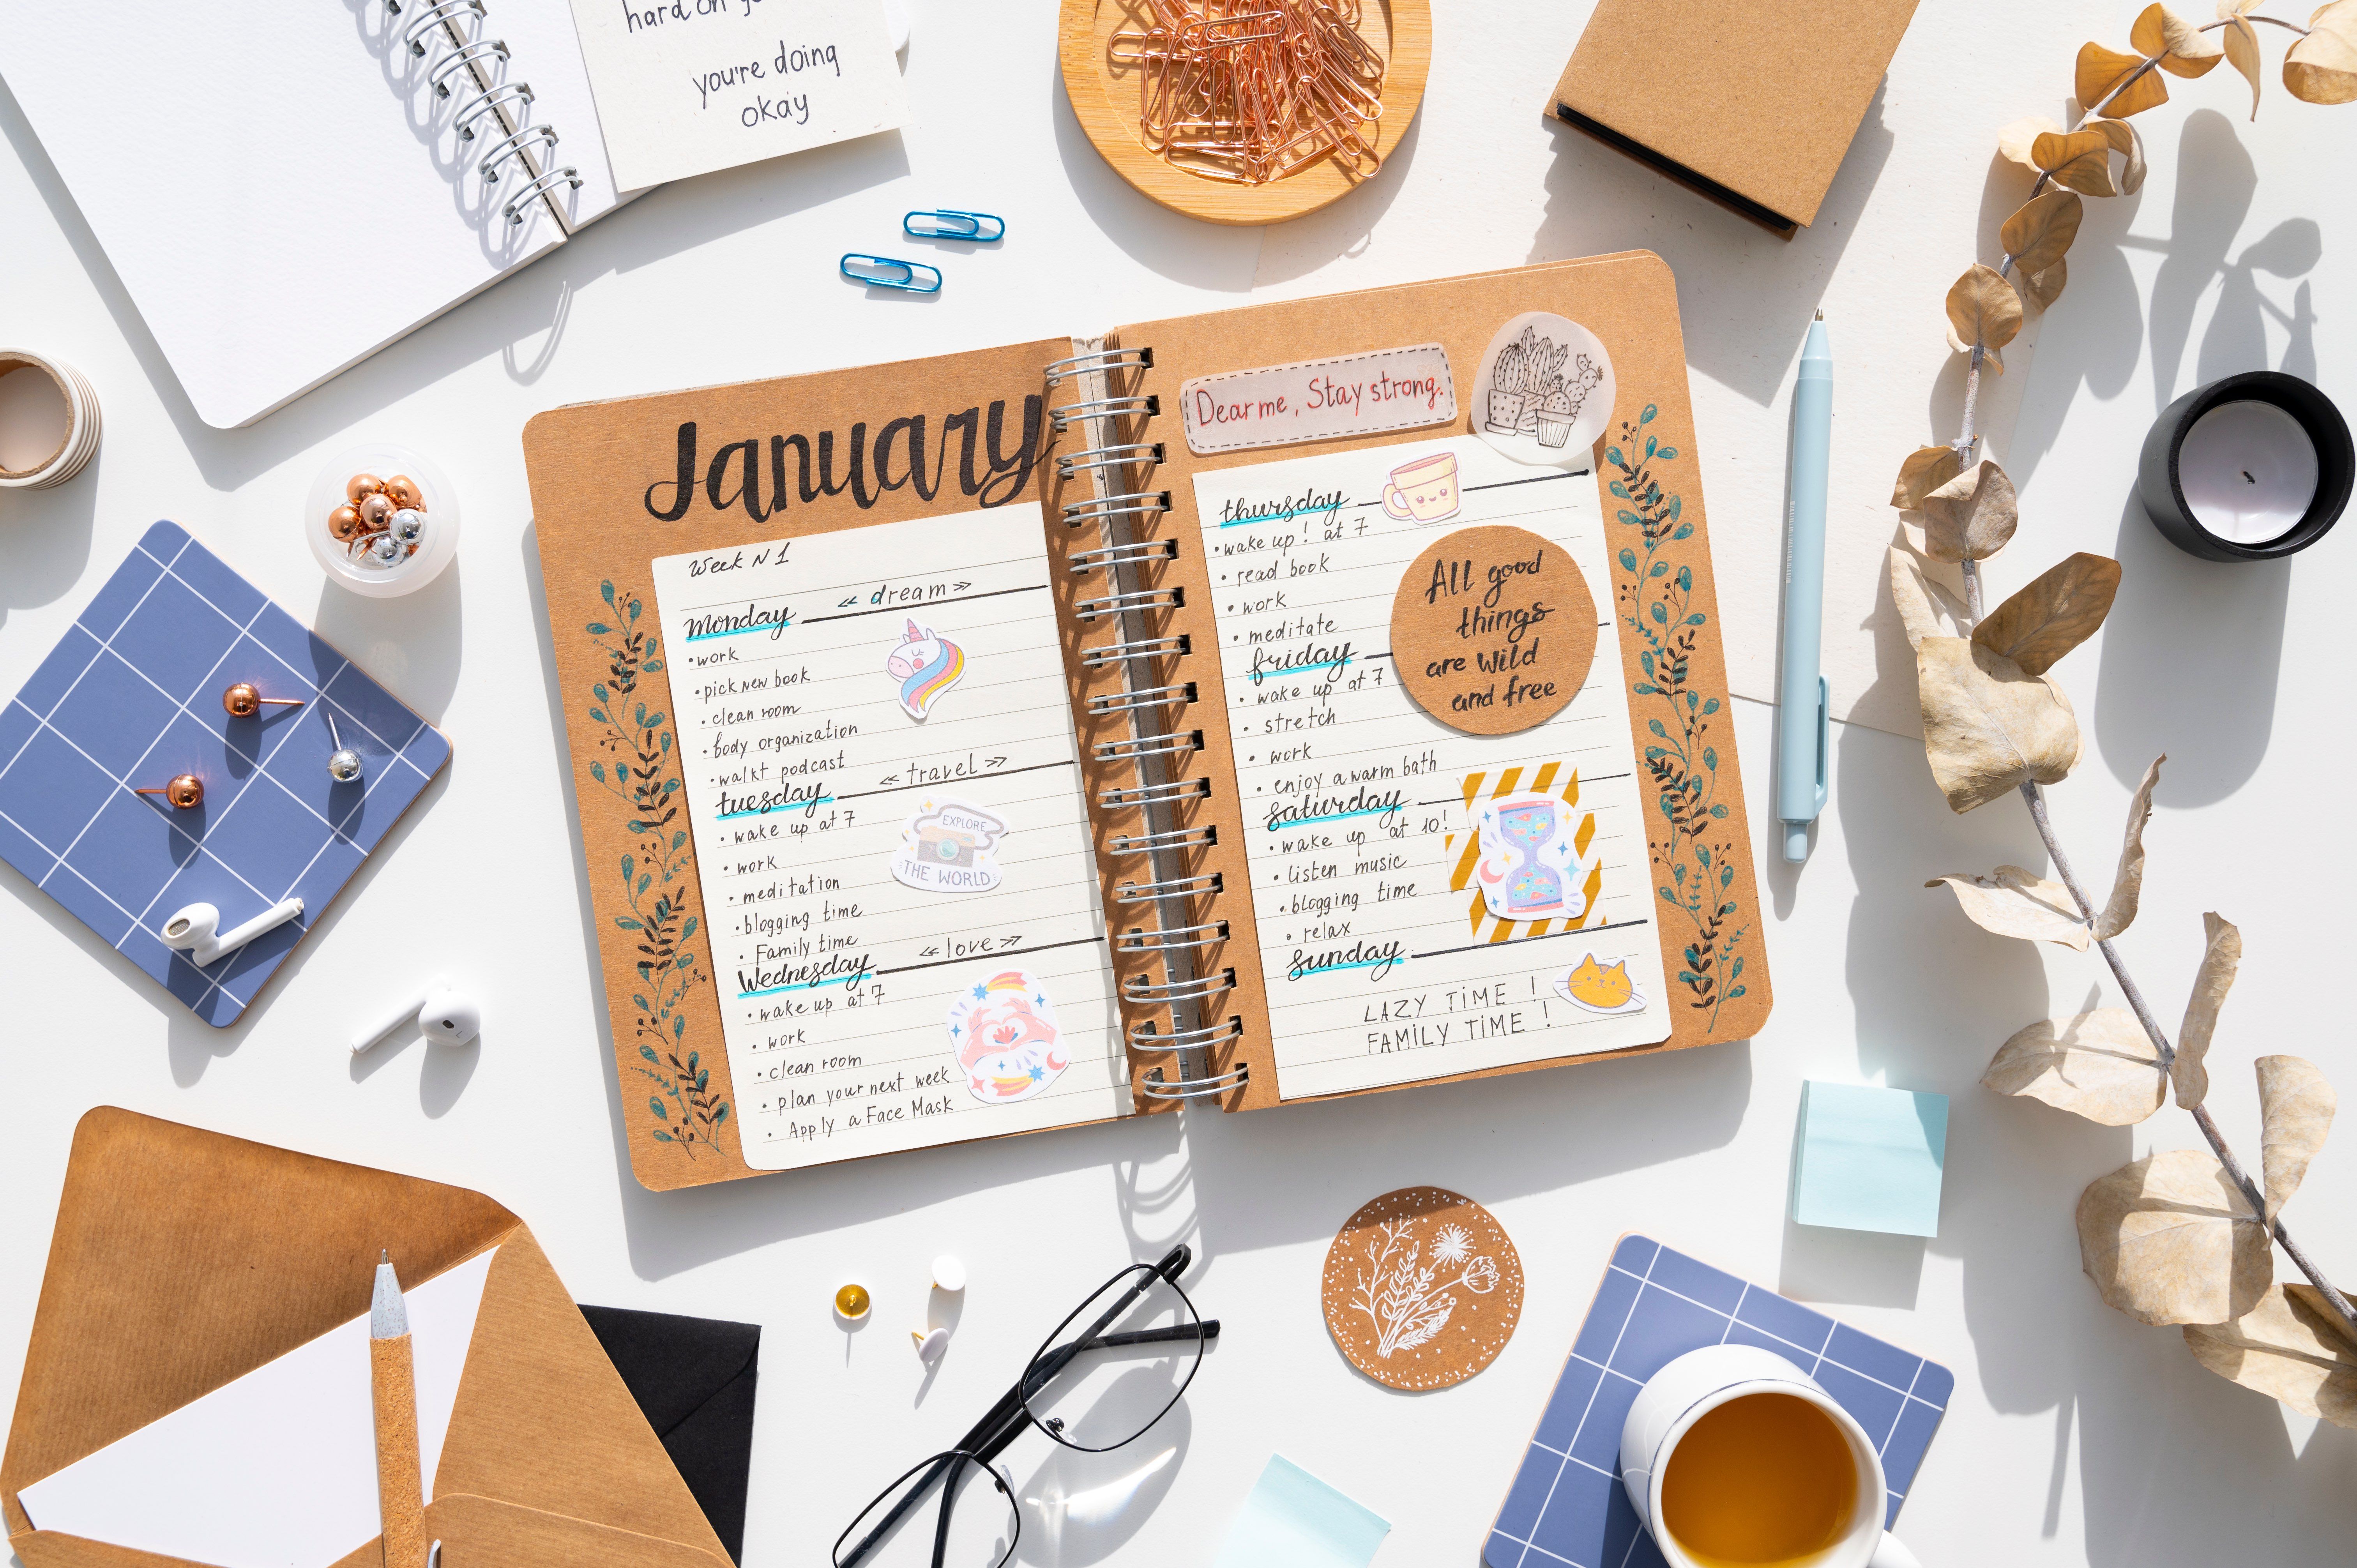 hard on
you're doing
okay
January
Week N 1
« dream »
monday
• work
• pick new book
• clean room
• body organization
• walkt podcast
« travel »
tuesday
• wake up at 7
• work
• meditation
• blogging time
• Family time
EXPLORE
THE WORLD
« love »
Wednesday
• wake up at 7
• work
• clean room
• plan your next week
• Apply a Face Mask
Dear me, Stay strong.
thursday
• wake up! at 7
• read book
• work
• meditate
All good
things
are wild
and free
friday
• wake up at 7
• stretch
• work
• enjoy a warm bath
saturday
• wake up at 10!
• listen music
• blogging time
• relax
sunday
LAZY TIME !
FAMILY TIME !